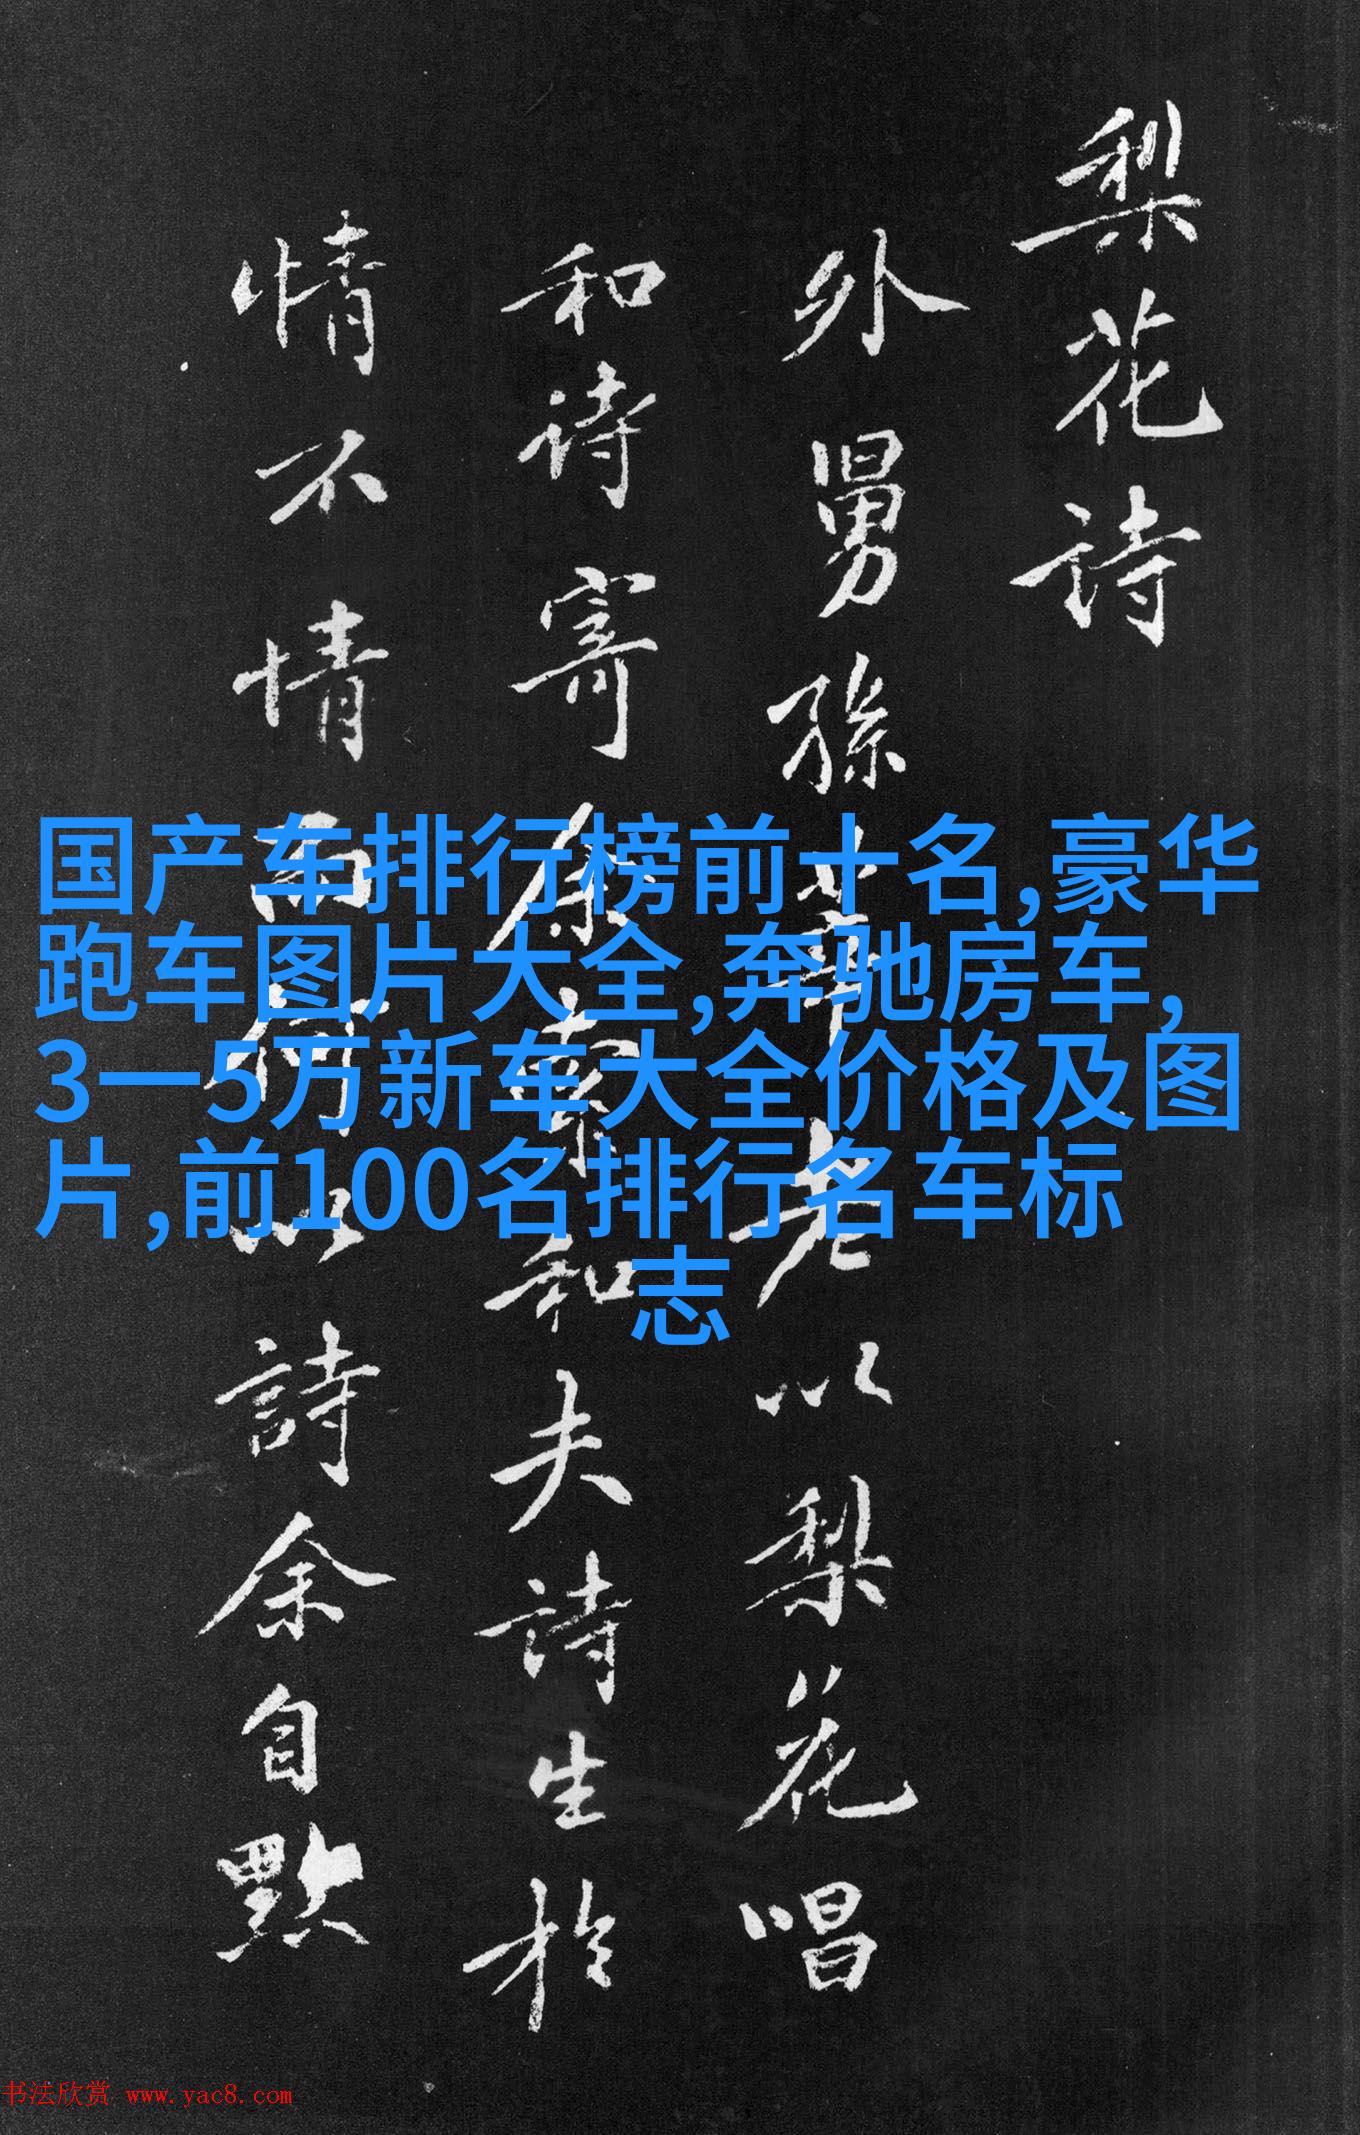 梨花詩
外舅孫莘老以梨花唱
和诗寄余索和夫詩生於
情不情而何以詩余自點
国产车排行榜前十名,豪华
跑车图片大全,奔驰房车,
3一5万新车大全价格及图
片,前100名排行名车标
志
书法欣赏 www.yac8.com